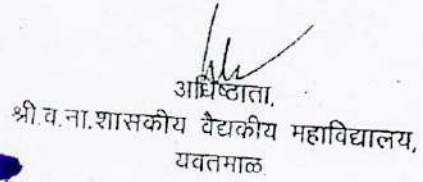 अधिष्ठाता,
श्री.व.ना.शासकीय वैद्यकीय महाविद्यालय,
यवतमाळ